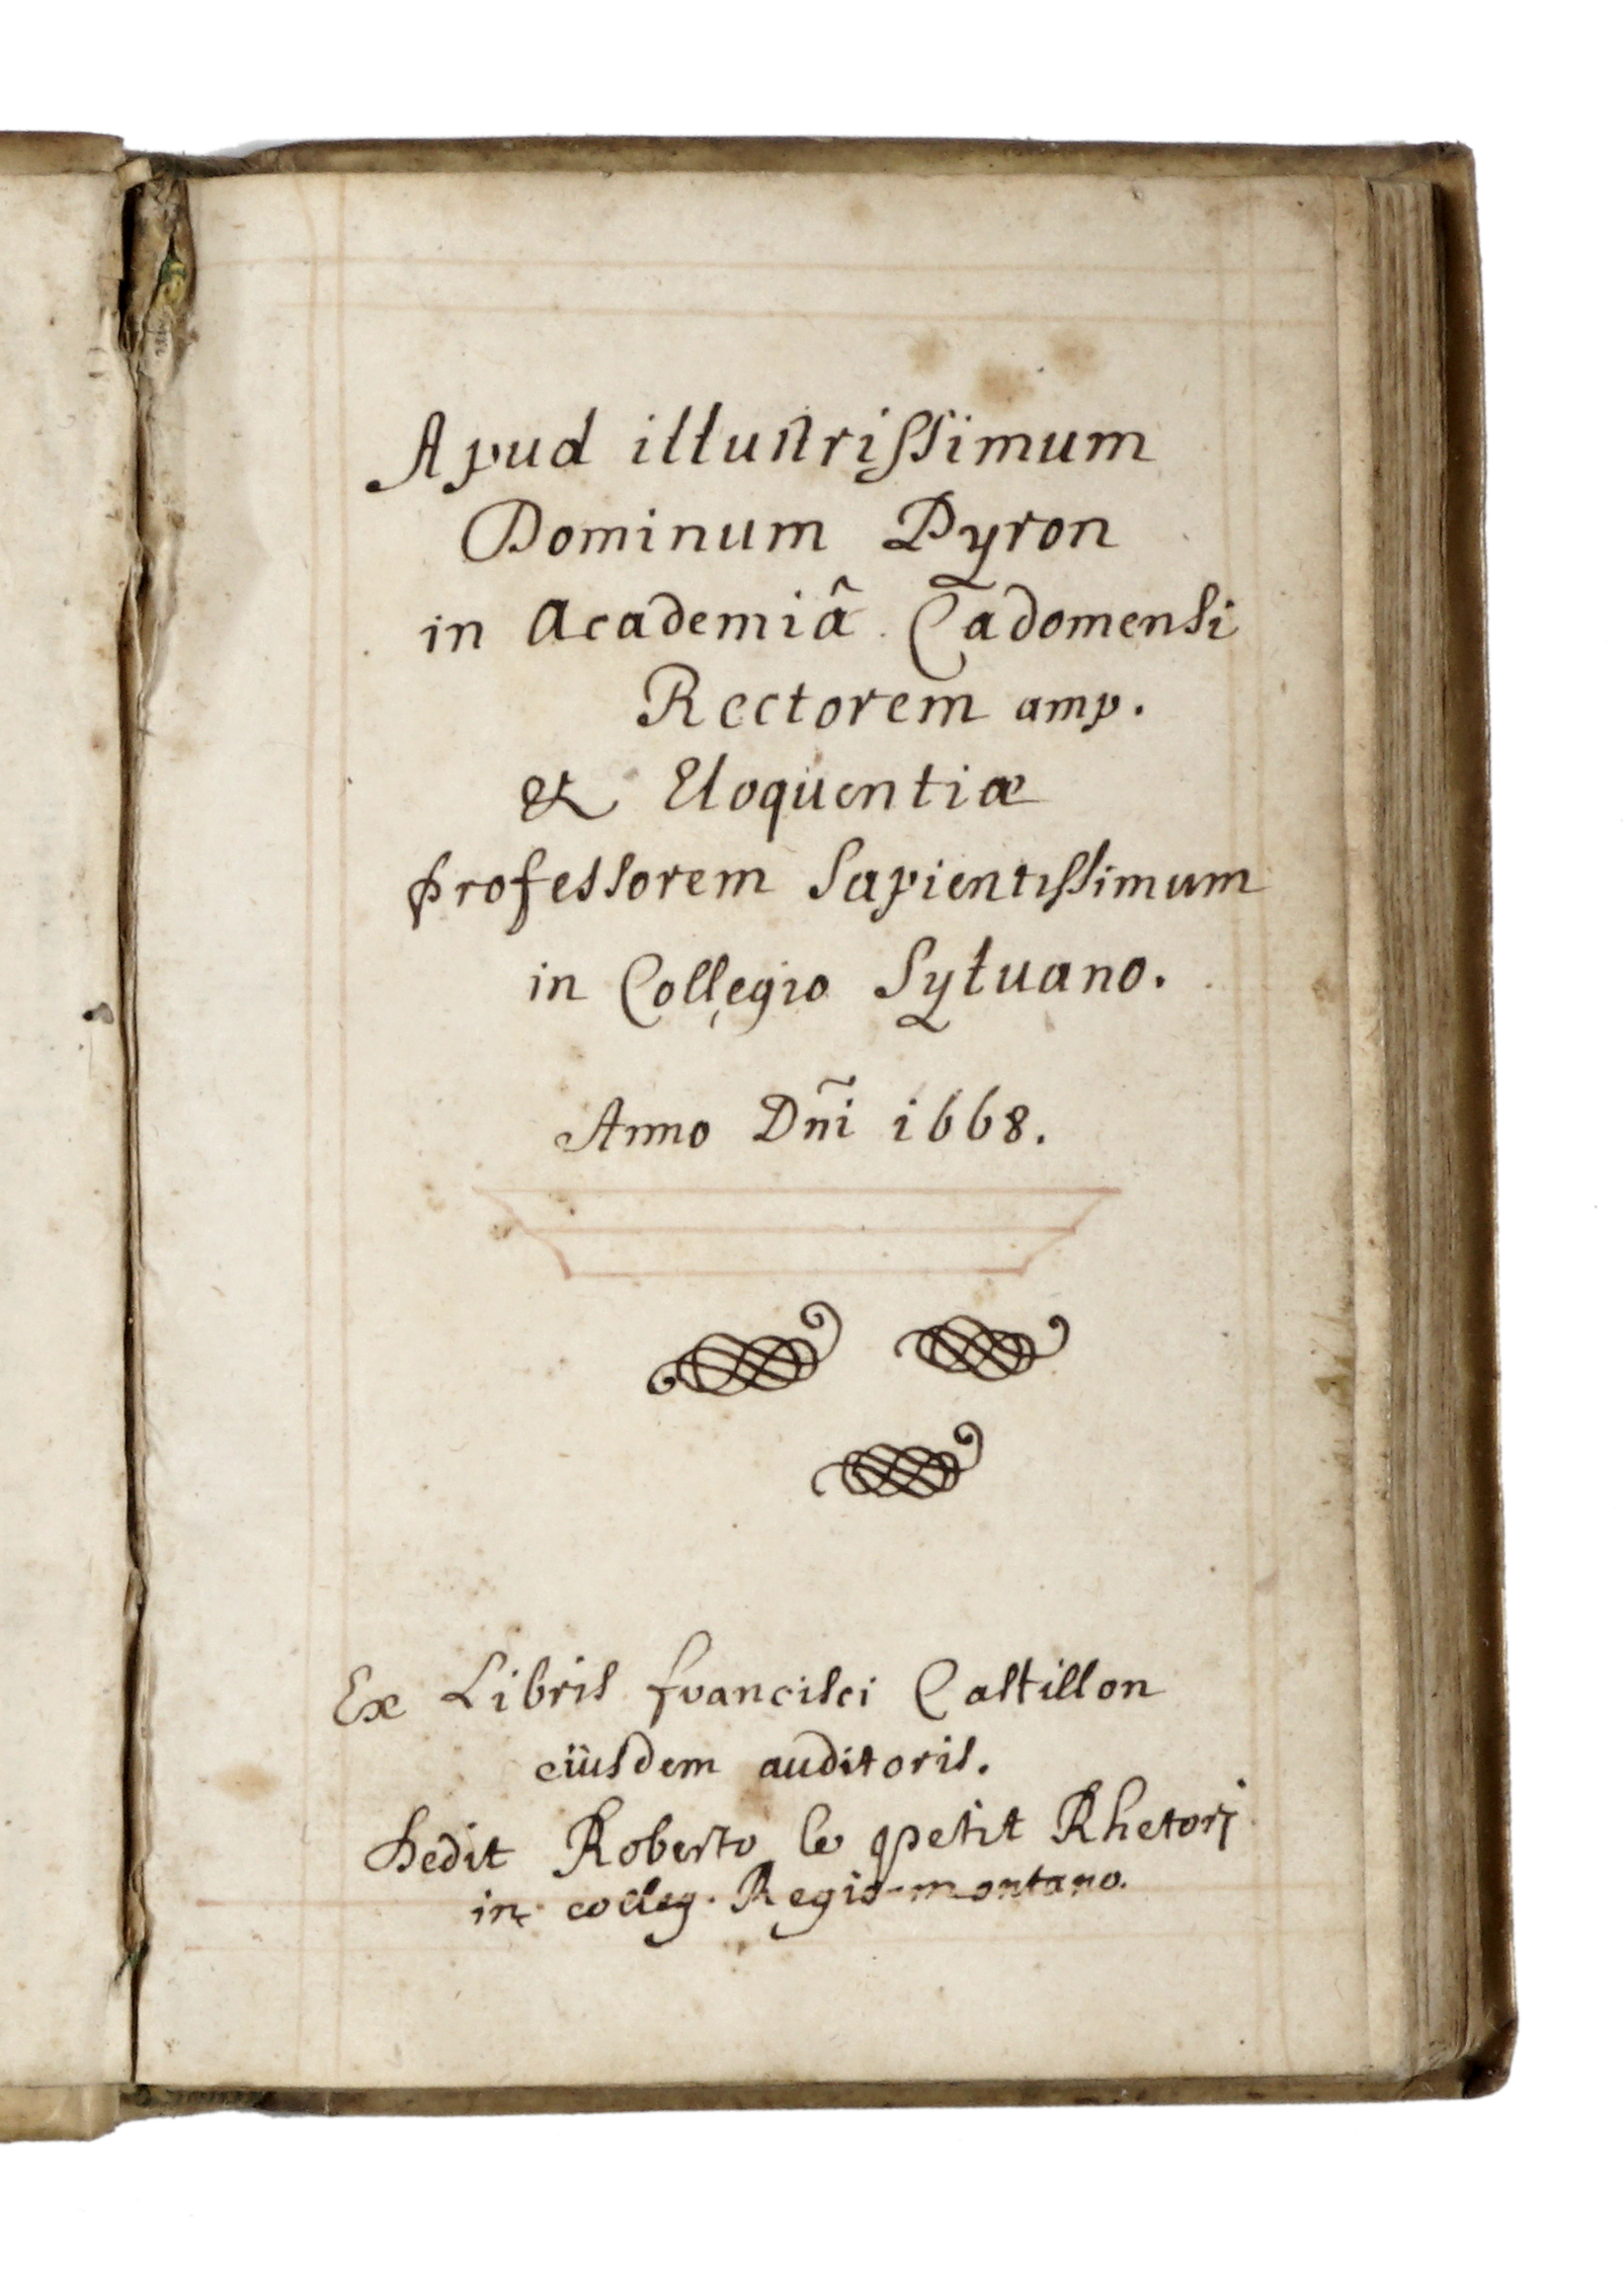 Apud illustrissimum
Dominum Pyron
in Academiâ Cadomensi
Rectorem amp.
& Eloquentiæ
professorem Sapientissimum
in Collegio Syluano.
Anno Dñi 1668.
Ex Libris francisci Castillon
eiusdem auditoris.
dedit Roberto le petit Rhetori
in colleg. Regio-montano.